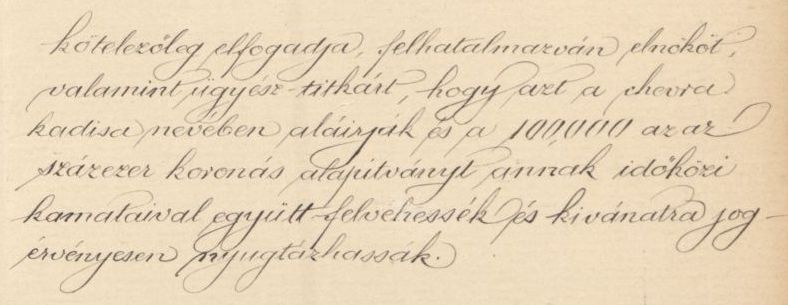 kötelezőleg elfogadja, felhatalmazván elnököt,
valamint ügyész-titkárt, hogy azt a chevra
kadisa nevében aláirják és a 100,000 azaz
százezer koronás alapítványt annak időközi
kamataival együtt felvehessék és kivánatra jog-
érvényesen nyugtázhassák.